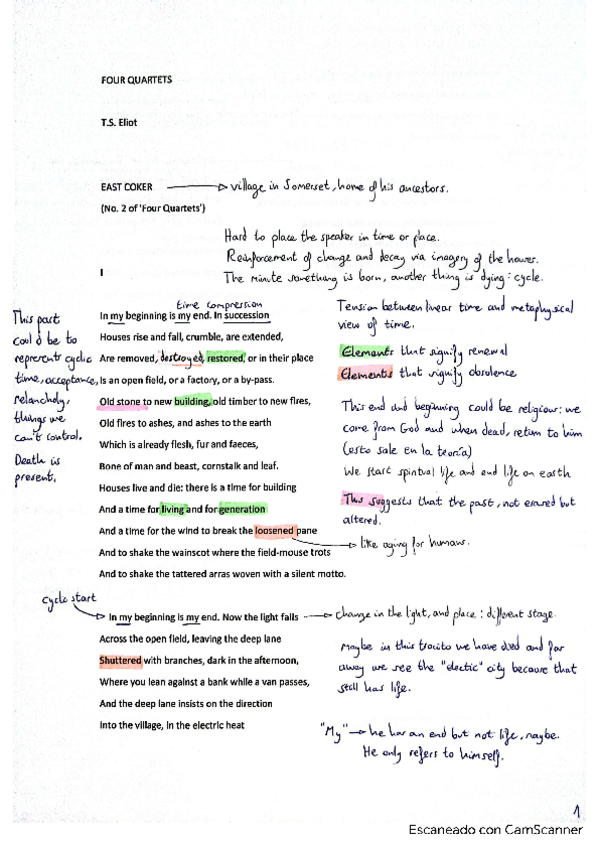 FOUR QUARTETS
T.S. Eliot
EAST COKER → village in Somerset, home of his ancestors.
(No. 2 of 'Four Quartets')
Hard to place the speaker in time or place.
Reinforcement of change and decay via imagery of the houses.
I
The minute something is born, another thing is dying: cycle.
time compression
In my beginning is my end. In succession
Houses rise and fall, crumble, are extended,
Are removed, destroyed, restored, or in their place
Is an open field, or a factory, or a by-pass.
Old stone to new building, old timber to new fires,
Old fires to ashes, and ashes to the earth
Which is already flesh, fur and faeces,
Bone of man and beast, cornstalk and leaf.
Houses live and die: there is a time for building
And a time for living and for generation
And a time for the wind to break the loosened pane
And to shake the wainscot where the field-mouse trots
And to shake the tattered arras woven with a silent motto.
This part
could be to
represent cyclic
time, acceptance,
melancholy,
things we
can't control.
Death is
present.
Tension between linear time and metaphysical
view of time.
Elements that signify renewal
Elements that signify obsolence
This end and beginning could be religious: we
come from God and when dead, return to him
(esto sale en la teoría)
We start spiritual life and end life on earth
This suggests that the past, not erased but
altered.
like aging for humans.
cycle start
In my beginning is my end. Now the light falls → change in the light, and place: different stage.
Across the open field, leaving the deep lane
Shuttered with branches, dark in the afternoon,
Where you lean against a bank while a van passes,
And the deep lane insists on the direction
Into the village, in the electric heat
Maybe in this trocito we have died and far
away we see the "electic" city because that
still has life.
"My" → he has an end but not life, maybe.
He only refers to himself.
1
Escaneado con CamScanner